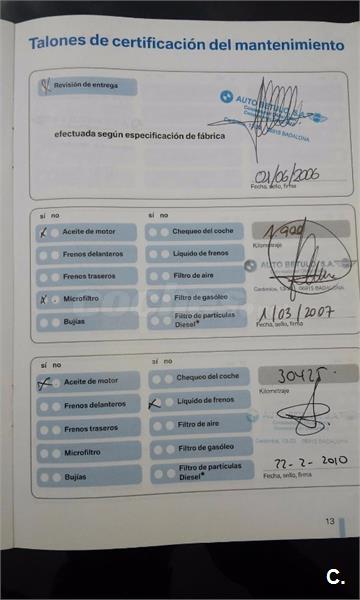 Talones de certificación del mantenimiento
Revisión de entrega
AUTO BETULO, S.A.
08915 BADALONA
efectuada según especificación de fábrica
01/06/2006
Fecha, sello, firma
sí no
sí no
Aceite de motor
Chequeo del coche
Frenos delanteros
Líquido de frenos
Kilometraje
Frenos traseros
Filtro de aire
AUTO BETULO, S.A.
08915 BADALONA
Microfiltro
Filtro de gasóleo
1/03/2007
Bujías
Filtro de partículas
Diesel*
Fecha, sello, firma
sí no
sí no
Aceite de motor
Chequeo del coche
30425
Kilometraje
Frenos delanteros
Líquido de frenos
Frenos traseros
Filtro de aire
Microfiltro
Filtro de gasóleo
22-2-2010
Bujías
Filtro de partículas
Diesel*
Fecha, sello, firma
13
C.